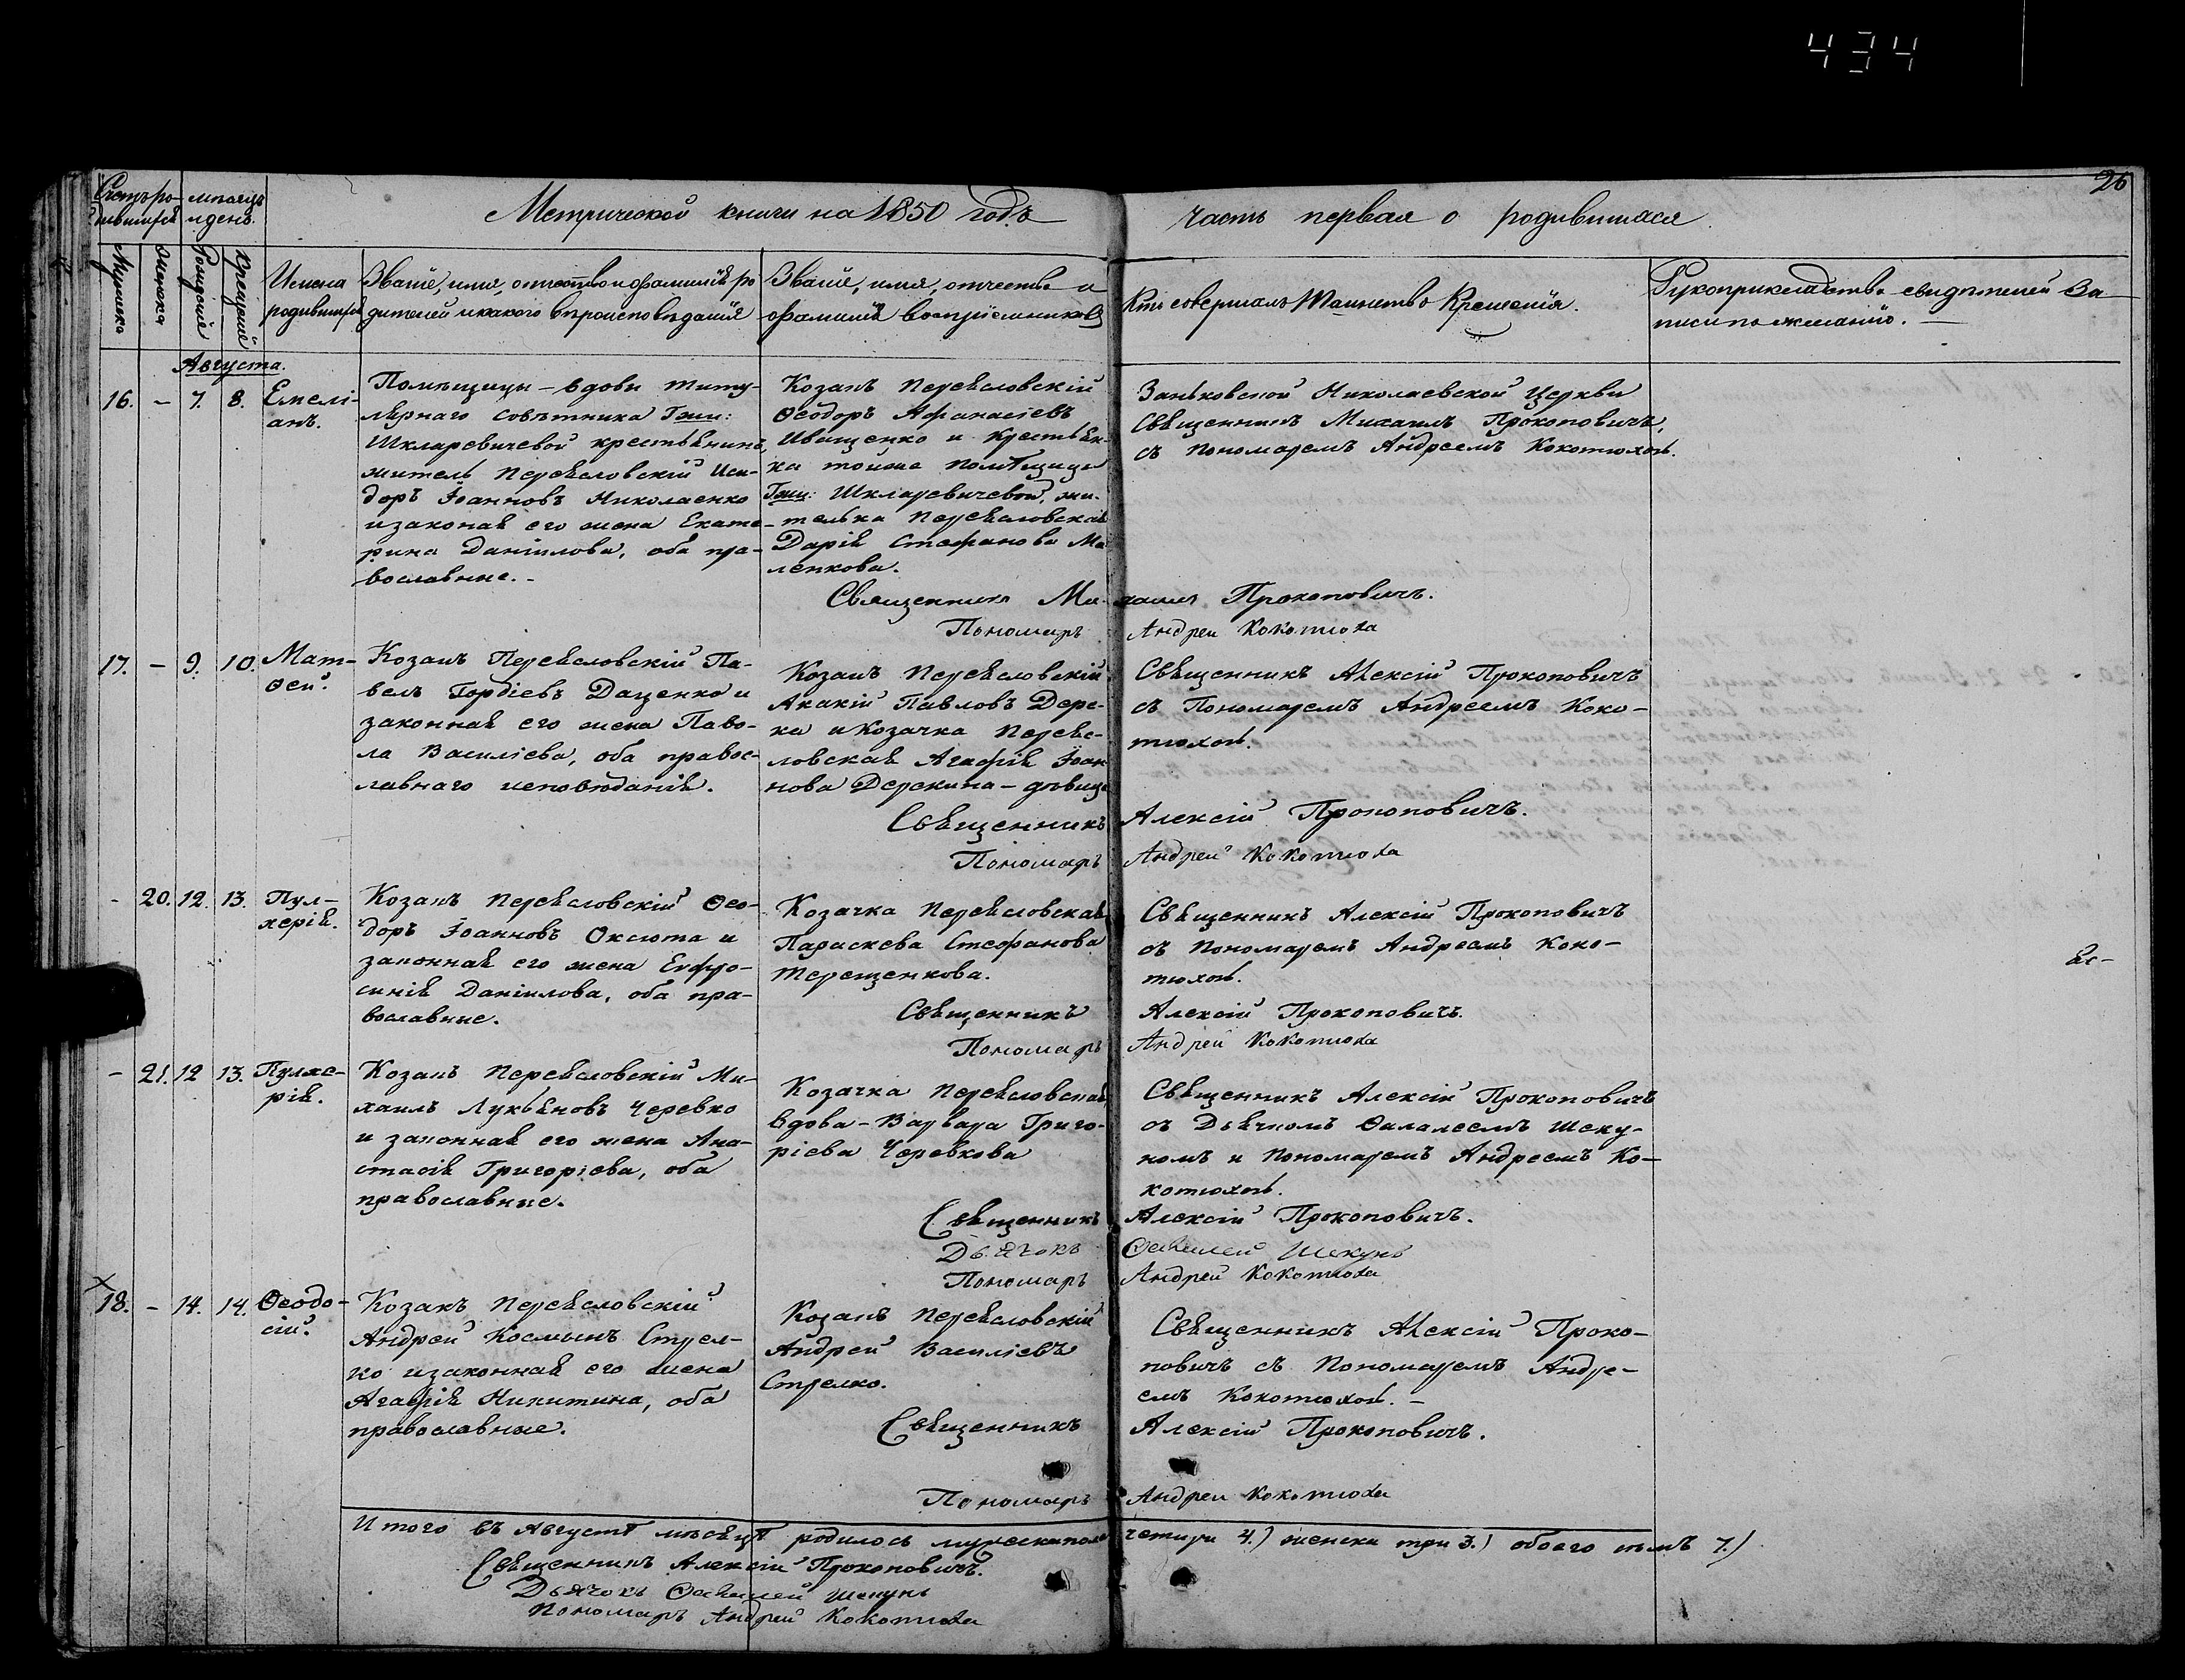 434
26
Счетъ ро- мѣсяцъ
дившихся и день.
Метрической книги на 1850 годъ часть первая о родившихся.
Мужеска
Женска
Рожденія
Крещенія
Имена
родившихся
Званіе, имя, отчество и фамилія ро
дителей и какого вѣроисповѣданія
Званіе, имя, отчество и
фамилія воспріемниковъ
Кто совершалъ Таинство Крещенія.
Рукоприкладство свидѣтелей за-
писи по желанію. —
Августа.
16. – 7. 8. Емелі-
анъ.
Помѣщицы – вдовы титу-
лярнаго совѣтника Гжи:
Шкляревичевой крестьянинъ,
житель Переясловскій Иси-
доръ Іоанновъ Николаенко
и законная его жена Екате-
рина Даніилова, оба пра-
вославные. –
Козакъ Переясловскій
Ѳеодоръ Афанасіевъ
Иващенко и крестьян-
ка тойже помѣщицы
Гжи: Шкляревичевой, жи-
телька Переясловская
Дарія Стефанова Ма
ленкова.
Заньковской Николаевской Церкви
Священникъ Михаилъ Прокоповичъ,
съ пономаремъ Андреемъ Кокотюхою.
Священникъ Ми-хаилъ Прокоповичъ.
Пономарь Андрей Кокотюха
17. – 9. 10. Мат-
ѳей.
Козакъ Переясловскій Па-
велъ Гордіевъ Даценко и
законная его жена Паво-
ла Василіева, оба правос-
лавнаго исповѣданія.
Козакъ Переясловскій
Акакій Павловъ Дере-
ка и Козачка Переяс-
ловская Агафія Іоан
нова Дерекина – дѣвица
Священникъ Алексій Прокоповичъ
съ Пономаремъ Андреемъ Коко-
тюхою.
Священникъ Алексій Прокоповичъ.
Пономарь Андрей Кокотюха
- 20. 12. 13. Пул-
херія.
Козакъ Переясловскій Ѳео-
доръ Іоанновъ Оксюта и
законная его жена Евфро-
синія Даніилова, оба пра-
вославные.
Козачка Переясловская
Параскева Стефанова
Терещенкова.
Священникъ Алексій Прокоповичъ
съ Пономаремъ Андреемъ Коко-
тюхою.
Священникъ Алексій Прокоповичъ.
Пономарь Андрей Кокотюха
– 21. 12 13. Пулхе-
рія.
Козакъ Переясловскій Ми-
хаилъ Лукьяновъ Черевко
и законная его жена Ана-
стасія Григоріева, оба
православные.
Козачка Переясловская,
вдова – Варвара Григо-
ріева Черевкова
Священникъ Алексій Прокоповичъ
съ Дьячкомъ Ѳалалеемъ Шеку-
номъ и Пономаремъ Андреемъ Ко-
котюхою.
Священникъ Алексій Прокоповичъ.
Дьячокъ Ѳалалей Шекунъ
Пономарь Андрей Кокотюха
х
18. – 14. 14. Ѳеодо-
сій.
Козакъ Переясловскій
Андрей Космынъ Стрел-
ко и законная его жена
Агафія Никитина, оба
православные.
Козакъ Переясловскій
Андрей Василіевъ
Стрелко.
Священникъ Алексій Проко-
повичъ съ Пономаремъ Андре-
емъ Кокотюхою. –
Священникъ Алексій Прокоповичъ.
Пономарь Андрей Кокотюха
Итого въ Августѣ мѣсяцѣ родилось мужеска пола четыри 4.) женска три 3.) обоего семъ 7.)
Священникъ Алексій Прокоповичъ.
Дьячокъ Ѳалалей Шекунъ
Пономарь Андрей Кокотюха